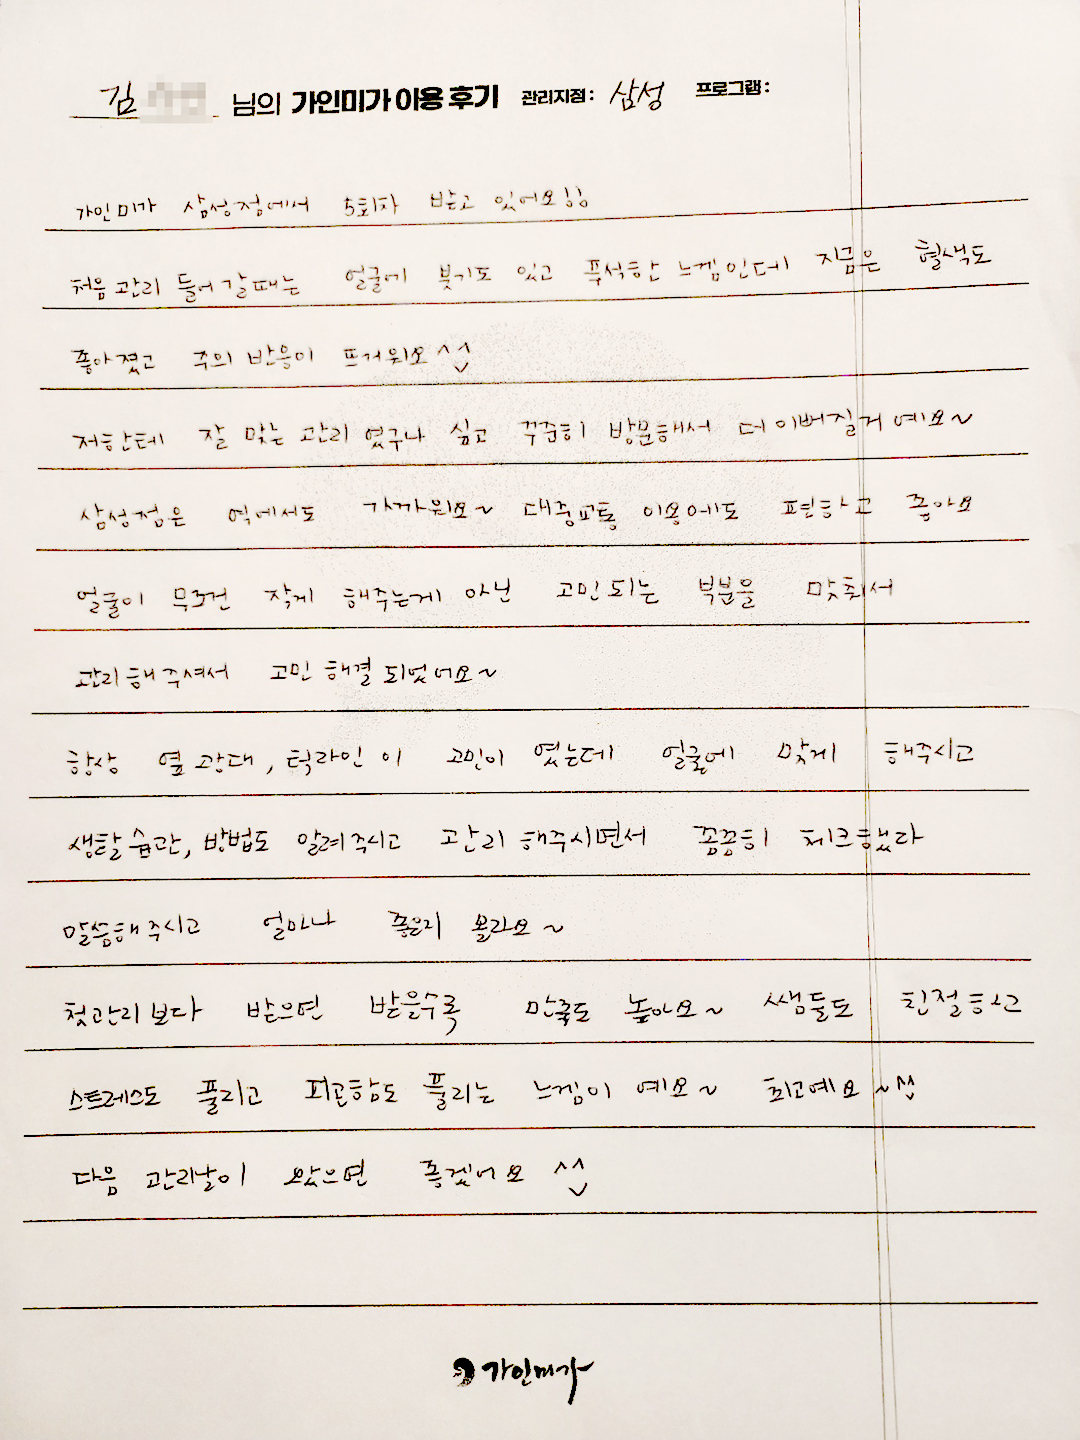 김 님의 가인미가 이용 후기 관리지점: 삼성 프로그램:
가인미가 삼성점에서 5회차 받고 있어요!!
처음 관리 들어갈때는 얼굴에 붓기도 있고 푸석한 느낌인데 지금은 혈색도
좋아졌고 주의 반응이 뜨거워요 ^^
저한테 잘 맞는 관리 였구나 싶고 꾸준히 방문해서 더 이뻐질거 예요~
삼성점은 역에서도 가까워요~ 대중교통 이용에도 편하고 좋아요
얼굴이 무조건 작게 해주는게 아닌 고민되는 부분을 맞춰서
관리해주셔서 고민 해결 되었어요~
항상 옆 광대, 턱라인 이 고민이 였는데 얼굴에 맞게 해주시고
생활 습관, 방법도 알려주시고 관리 해주시면서 꼼꼼히 체크했다
말씀해주시고 얼마나 좋은지 몰라요~
첫관리보다 받으면 받을수록 만족도 높아요~ 쌤들도 친절하고
스트레스도 풀리고 피곤함도 풀리는 느낌이 예요~ 최고예요~^^
다음 관리날이 왔으면 좋겠어요 ^^
가인미가